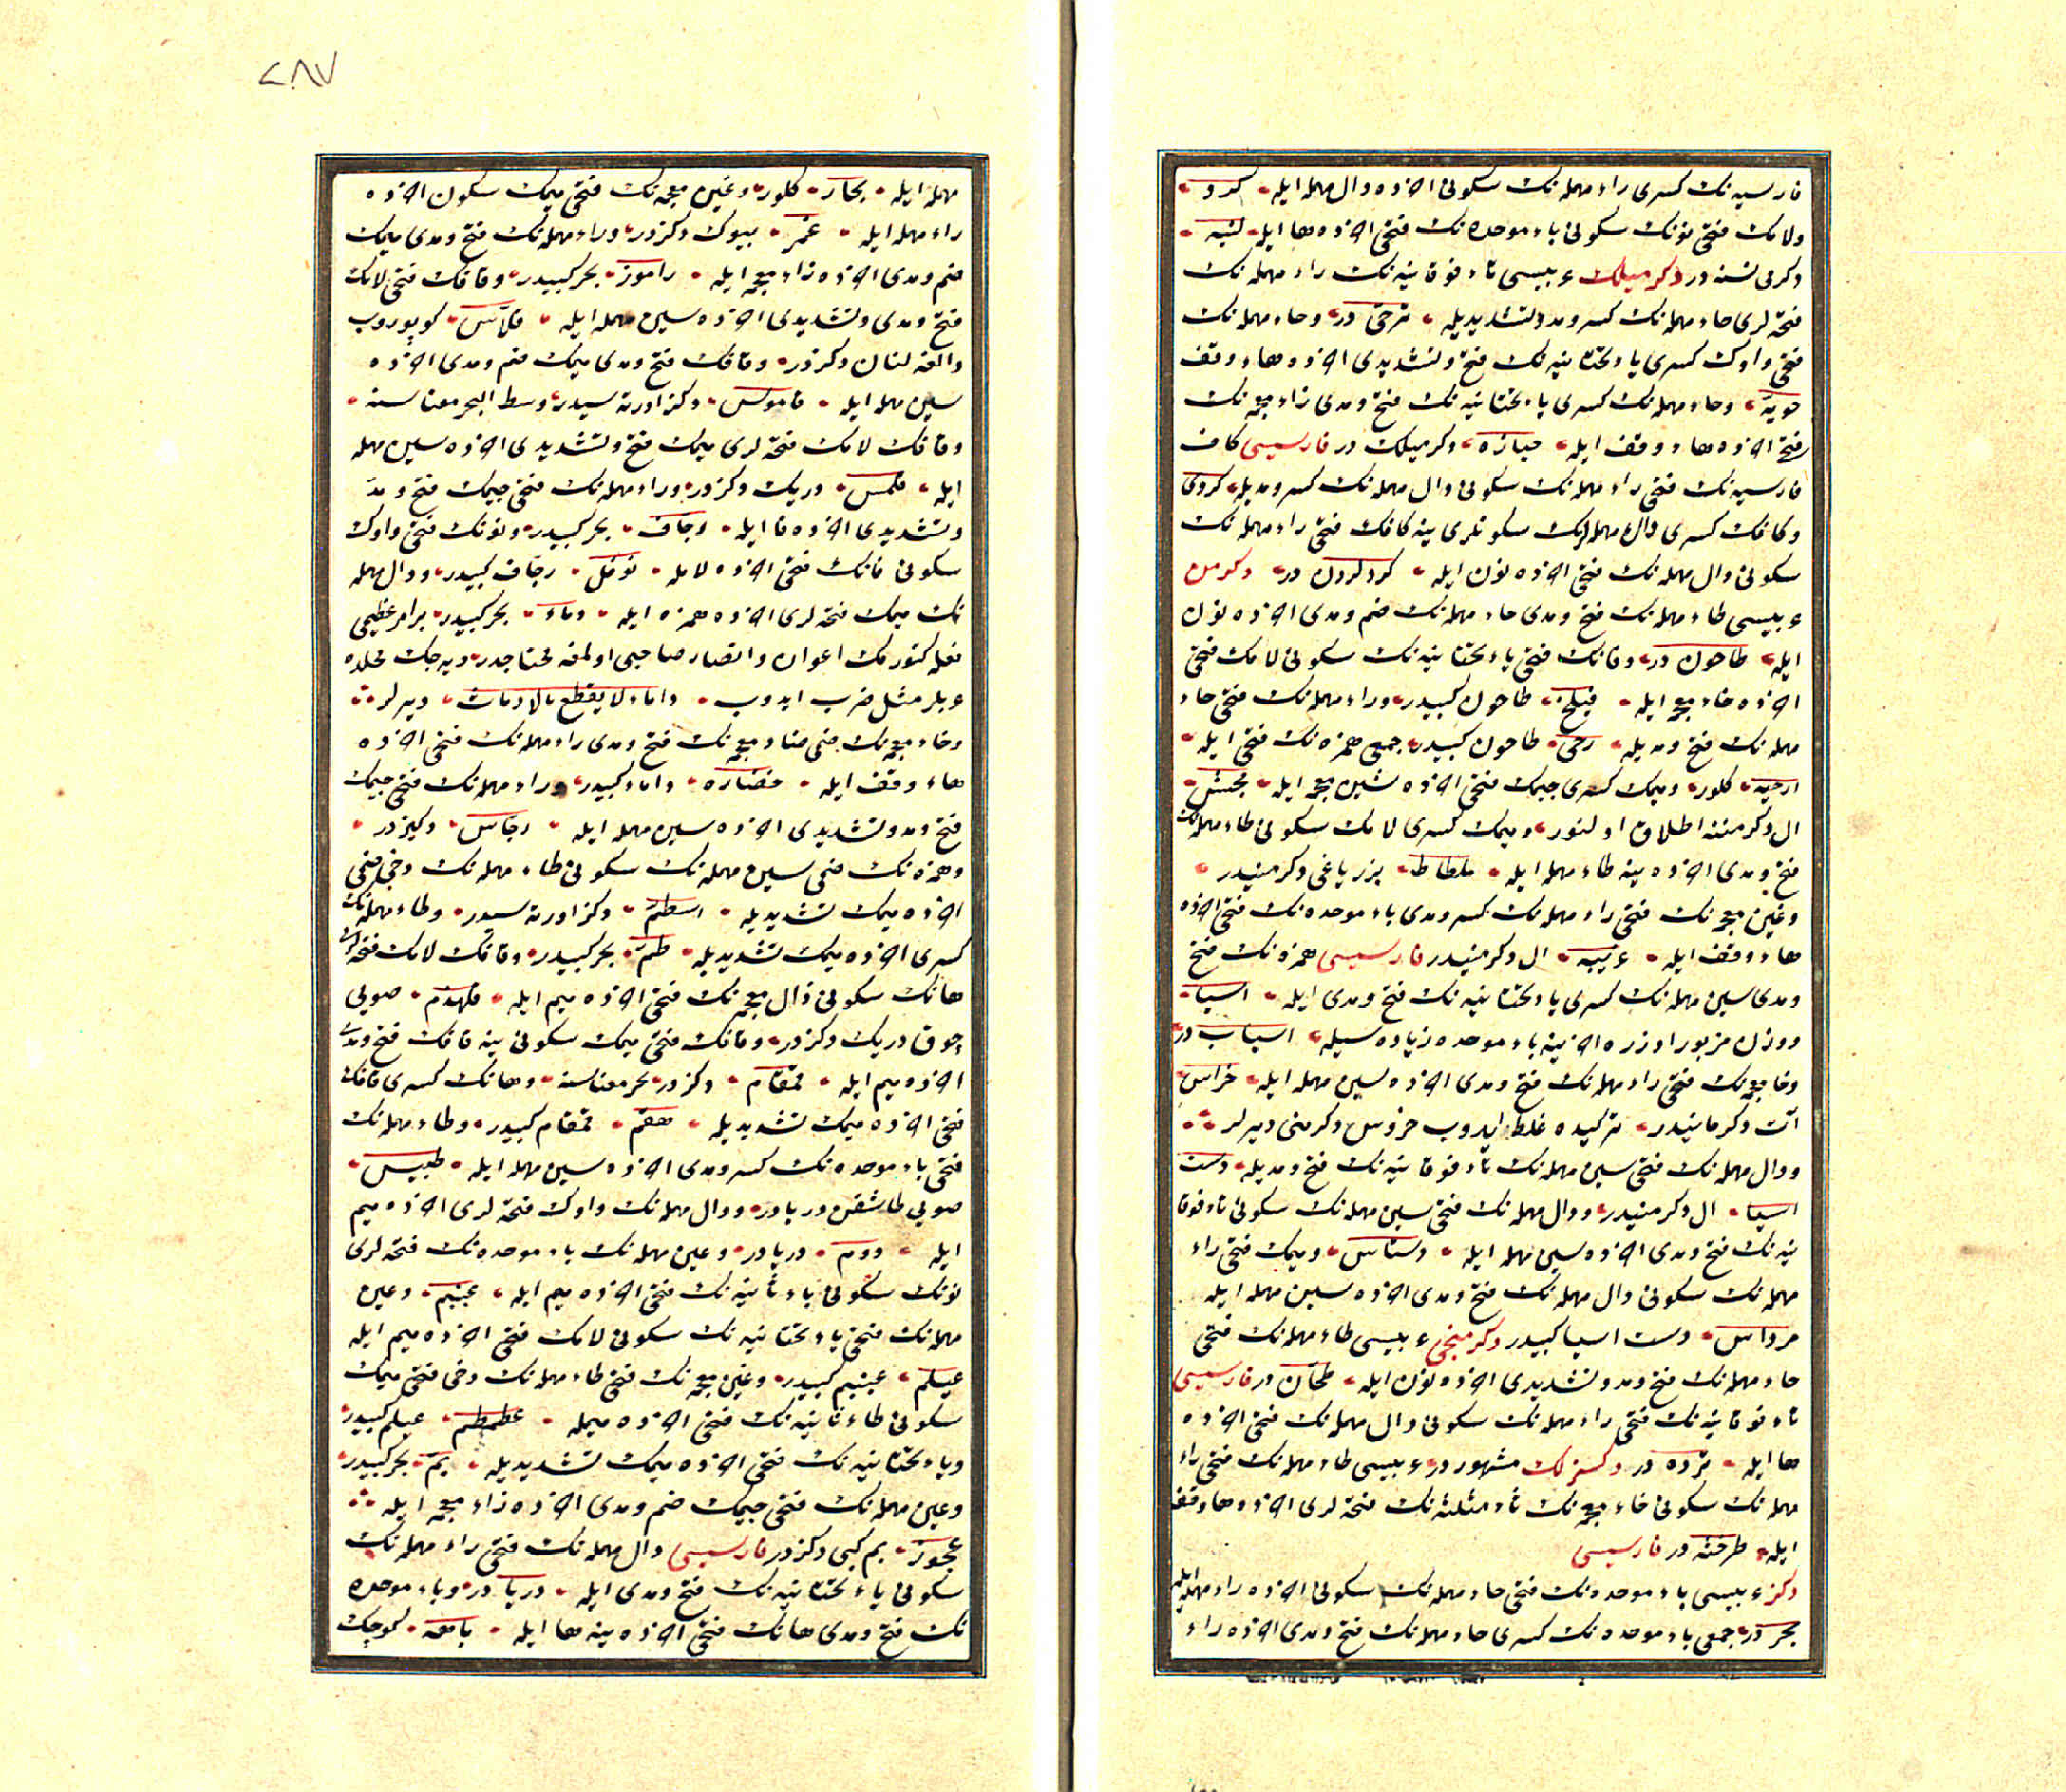 فارسیه نك کسری راء مهمله نك سکونی اخرده دال مهمله ایله کرد
ولامك فتحی نونك سکونی باء موحده نك فتحی اخرده ها ایله لنبه
دکرمی نسنه در دکرمیلك عربیسی تاء فوقانیه نك راء مهمله نك
فتحه لری حاء مهمله نك کسر ومد وتشدیدیله ترحی در وحاء مهمله نك
فتحی واوك کسری یاء تحتانیه نك فتح وتشدیدی اخرده هاء وقف
حویه وحاء مهمله نك کسری یاء تحتانیه نك فتح ومدی زاء معجمه نك
فتحی اخرده هاء وقف ایله حیازه دکرمیلك در فارسیسی کاف
فارسیه نك فتحی راء مهمله نك سکونی دال مهمله نك کسر ومدیله کردی
وکافك کسری دال مهمله نك سکونلری ینه کافك فتحی راء مهمله نك
سکونی دال مهمله نك فتحی اخرده نون ایله کردکردن در دکرمن
عربیسی طاء مهمله نك فتح ومدی حاء مهمله نك ضم ومدی اخرده نون
ایله طاحون در وفانك فتحی یاء تحتانیه نك سکونی لامك فتحی
اخرده خاء معجمه ایله فیلخ طاحون کبیدر وراء مهمله نك فتحی حاء
مهمله نك فتح ومدیله رحی طاحون کبیدر جمعی همزه نك فتحی ایله
ارحیه کلور ومیمك کسری جیمك فتحی اخرده شین معجمه ایله مجش
ال دکرمننه اطلاق اولنور ومیمك کسری لامك سکونی طاء مهمله نك
فتح ومدی اخرده ینه طاء مهمله ایله ملطاط بزر یاغی دکرمنیدر
وغین معجمه نك فتحی راء مهمله نك کسر ومدی باء موحده نك فتحی اخرده
هاء وقف ایله غریبه ال دکرمنیدر فارسیسی همزه نك فتح
ومدی سین مهمله نك کسری یاء تحتانیه نك فتح ومدی ایله اسیا
ووزن مزبور اوزره اخرینه باء موحده زیاده سیله اسیاب در
وخا معجمه نك فتحی راء مهمله نك فتح ومدی اخرده سین مهمله ایله خراس
آت دکرمانیدر ترکیده غلط ایدوب خروس دکرمنی دیرلر
ودال مهمله نك فتحی سین مهمله نك تاء فوقانیه نك فتح ومدیله دست
اسیا ال دکرمنیدر ودال مهمله نك فتحی سین مهمله نك سکونی تاء فوقا
نیه نك فتح ومدی اخرده سین مهمله ایله دستاس ومیمك فتحی راء
مهمله نك سکونی دال مهمله نك فتح ومدی اخرده سین مهمله ایله
مرداس دست اسیا کبیدر دکرمنجی عربیسی طاء مهمله نك فتحی
حاء مهمله نك فتح ومد وتشدیدی اخرده نون ایله طحان در فارسیسی
تاء فوقانیه نك فتحی راء مهمله نك سکونی دال مهمله نك فتحی اخرده
ها ایله ترده در دکسزلك مشهور در عربیسی طاء مهمله نك فتحی راء
مهمله نك سکونی خاء معجمه نك ثاء مثلثه نك فتحه لری اخرده هاء وقف
ایله طرخثه در فارسیسی
دکز عربیسی باء موحده نك فتحی حاء مهمله نك سکونی اخرده راء مهمله ایله
بحر در جمعی باء موحده نك کسری حاء مهمله نك فتح ومدی اخرده راء
٢٨٧
مهمله ایله بحار کلور وغین معجمه نك فتحی میمك سکون اخرده
راء مهمله ایله غمر بیوك دکزدر وراء مهمله نك فتح ومدی میمك
ضم ومدی اخرده زاء معجمه ایله راموز بحر کبیدر وقافك فتحی لامك
فتح ومدی وتشدیدی اخرده سین مهمله ایله قلاس کوپوروب
دالغه لنان دکزدر وقافك فتح ومدی میمك ضم ومدی اخرده
سین مهمله ایله قاموس دکز اورته سیدر وسط البحر معناسنه
وقافك لامك فتحه لری میمك فتح وتشدیدی اخرده سین مهمله
ایله قلمس درین دکزدر وراء مهمله نك فتحی جیمك فتح ومد
وتشدیدی اخرده فا ایله رجاف بحر کبیدر ونونك فتحی واوك
سکونی فانك فتحی اخرده لامله نوفل رجاف کبیدر ودال مهمله
نك میمك فتحه لری اخرده همزه ایله دماء بحر کبیدر بر امر عظیمی
فعله کتورمك اعوان وانصار صاحبی اولمغه محتاجدر دیه جك محلده
عربلر مثل ضرب ایدوب داماء لا یقطع بالارماث دیرلر
وخاء معجمه نك ضمی ضاد معجمه نك فتح ومدی راء مهمله نك فتحی اخرده
هاء وقف ایله خضاره داماء کبیدر وراء مهمله نك فتحی جیمك
فتح ومد وتشدیدی اخرده سین مهمله ایله رجاس دکیزدر
وهمزه نك ضمی سین مهمله نك سکونی طاء مهمله نك دخی ضمی
اخرده میمك تشدیدیله اسطم دکز اورته سیدر وطاء مهمله نك
کسری اخرده میمك تشدیدیله طم بحر کبیدر وقافك لامك فتحه لری
هانك سکونی ذال معجمه نك فتحی اخرده میم ایله قلهذم صویی
چوق درین دکزدر وقافك فتحی میمك سکونی ینه قافك فتح ومدی
اخرده میم ایله قمقام دکزدر بحر معناسنه وهانك کسری قافك
فتحی اخرده میمك تشدیدیله هقم قمقام کبیدر وطاء مهمله نك
فتحی باء موحده نك کسر ومدی اخرده سین مهمله ایله طبیس
صویی طاشقین دریادر ودال مهمله نك واوك فتحه لری اخرده میم
ایله دوم دریادر وعین مهمله نك باء موحده نك فتحه لری
نونك سکونی باء ثانیه نك فتحی اخرده میم ایله وعین
مهمله نك فتحی یاء تحتانیه نك سکونی لامك فتحی اخرده میم ایله
عیلم کبیدر وغین معجمه نك فتحی طاء مهمله نك دخی فتحی میمك
سکونی طاء ثانیه نك فتحی اخرده میمله غطمطم عیلم کبیدر
ویاء تحتانیه نك فتحی اخرده میمك تشدیدیله یم بحر کبیدر
وعین مهمله نك فتحی جیمك ضم ومدی اخرده زاء معجمه ایله
عجوز یم کبی دکزدر فارسیسی دال مهمله نك فتحی راء مهمله نك
سکونی یاء تحتانیه نك فتح ومدی ایله دریا در وباء موحده
نك فتح ومدی هانك فتحی اخرده ینه ها ایله باهه کوچك